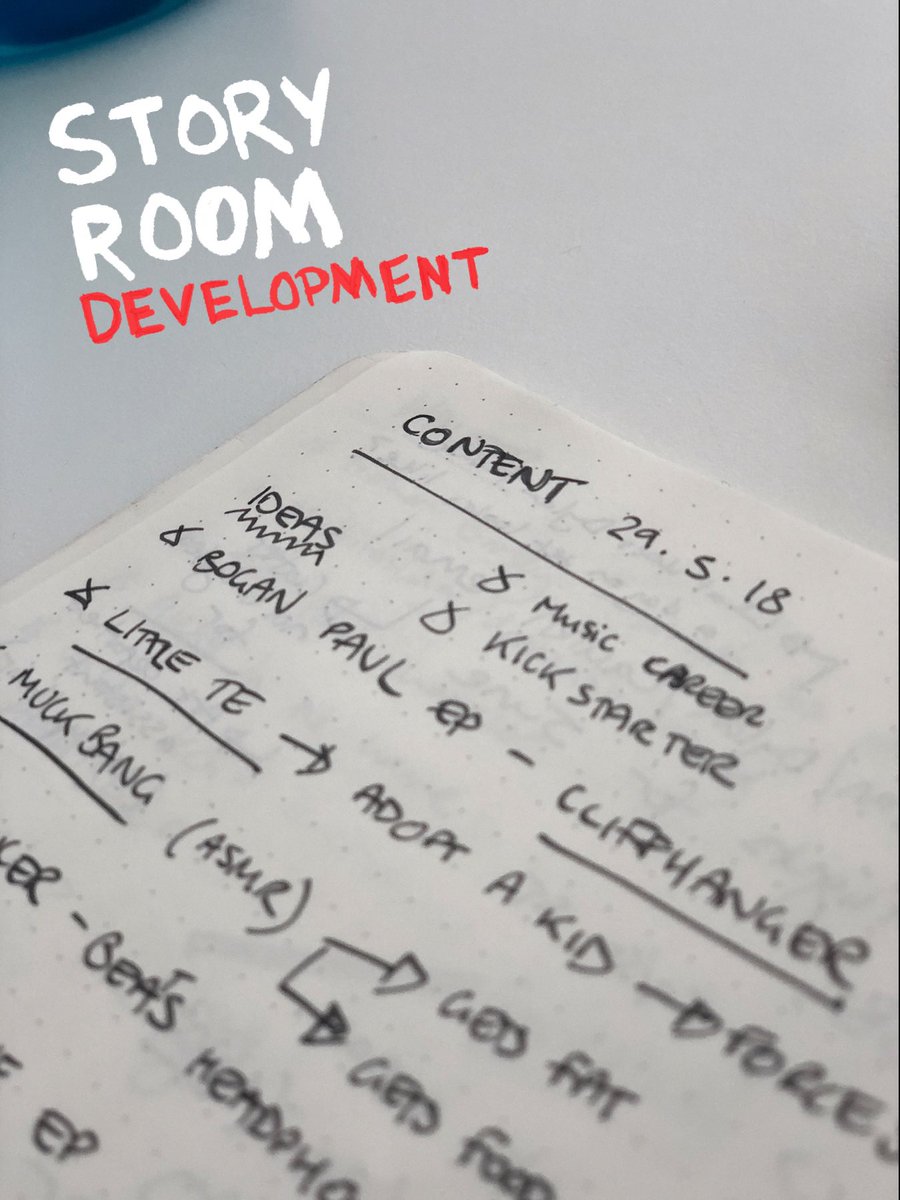 STORY
ROOM
DEVELOPMENT
CONTENT 29.5.18
IDEAS
MUSIC CAREER
KICKSTARTER
BOGAN PAUL EP - CLIFFHANGER
LITTLE TE → ADOPT A KID → FORCES
MUCKBANG (ASMR) → GETS FAT
→ GETS FOOD
- BEATS HEADPHO
EP